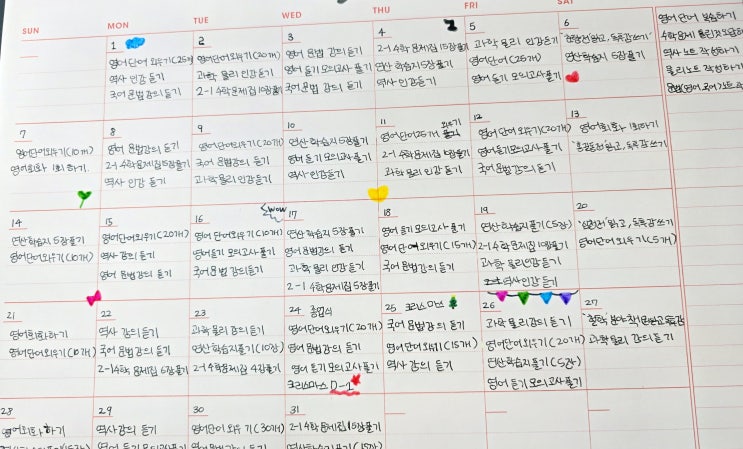 SUN MON TUE WED THU FRI SAT
1
영어단어 외우기(25개)
역사 인강 듣기
국어문법 강의 듣기
2
영어단어외우기(20개)
과학 물리 인강듣기
2-1 수학문제집 10장풀기
3
영어 문법 강의듣기
영어 듣기 모의고사 풀기
국어문법 강의 듣기
4
2-1 수학 문제집 15장풀기
연산 학습지 5장풀기
역사 인강 듣기
5
과학 물리 인강듣기
영어단어 (25개)
영어 듣기 모의고사풀기
6
읽고, 독후감쓰기
연산학습지 5장풀기
영어단어 복습하기
역사 노트 작성하기
물리노트 작성하기
7
영어단어외우기(10개)
영어회화 1회 하기
8
영어문법강의 듣기
2-1 수학문제집5장풀기
역사 인강 듣기
9
영어단어외우기(20개)
국어 문법강의 듣기
과학물리인강듣기
10
연산 학습지 5장풀기
영어 듣기 모의고사풀기
역사인강 듣기
11
영어단어25개 외우기
2-1 수학문제집 풀기
과학 물리 인강 듣기
12
영어단어외우기(20개)
영어듣기모의고사 풀기
국어문법강의듣기
13
영어회화 1회하기
읽고, 독후감쓰기
14
연산 학습지 5장 풀기
영어단어외우기(10개)
15
영어단어외우기(20개)
역사 강의 듣기
영어 문법 강의듣기
16
영어 단어외우기(10개)
영어듣기 모의고사풀기
국어문법 강의듣기
wow
17
연산 학습지 5장풀기
영어문법강의 듣기
과학 물리 인강듣기
2-1 수학문제집 5장풀기
18
영어 듣기 모의고사 풀기
영어단어 외우기(15개)
국어문법강의 듣기
19
연산학습지풀기(5장)
2-1 수학문제집 10장풀기
과학 물리인강 듣기
인강 듣기
20
읽고, 독후감쓰기
영어단어외우기(5개)
21
영어회화하기
영어단어외우기(10개)
22
역사 강의 듣기
국어 문법강의 듣기
2-1수학 문제집 6장풀기
23
과학 물리 강의 듣기
연산학습지풀기(10장)
2-1 수학문제집 4장풀기
24 졸업식
영어단어외우기(20개)
영어문법강의 듣기
영어 듣기 모의고사풀기
크리스마스 D-1
25 크리스마스
국어문법강의 듣기
영어단어 외우기(15개)
역사 강의 듣기
26
과학물리강의 듣기
영어단어외우기(20개)
연산학습지풀기(5장)
영어 듣기 모의고사풀기
27
과학물리 강의듣기
28
영어회화하기
29
역사강의 듣기
영어 듣기 모의고사풀기
30
영어단어 외우기(30개)
영어문법강의 듣기
31
2-1 수학문제집 15장풀기
연산학습지풀기(15장)